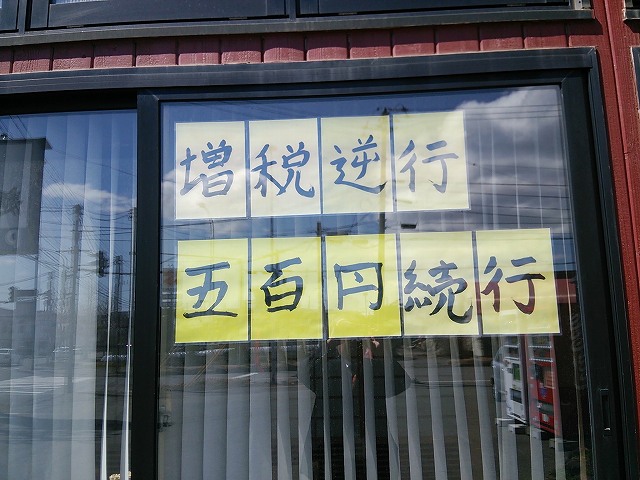 増税逆行
五百円続行